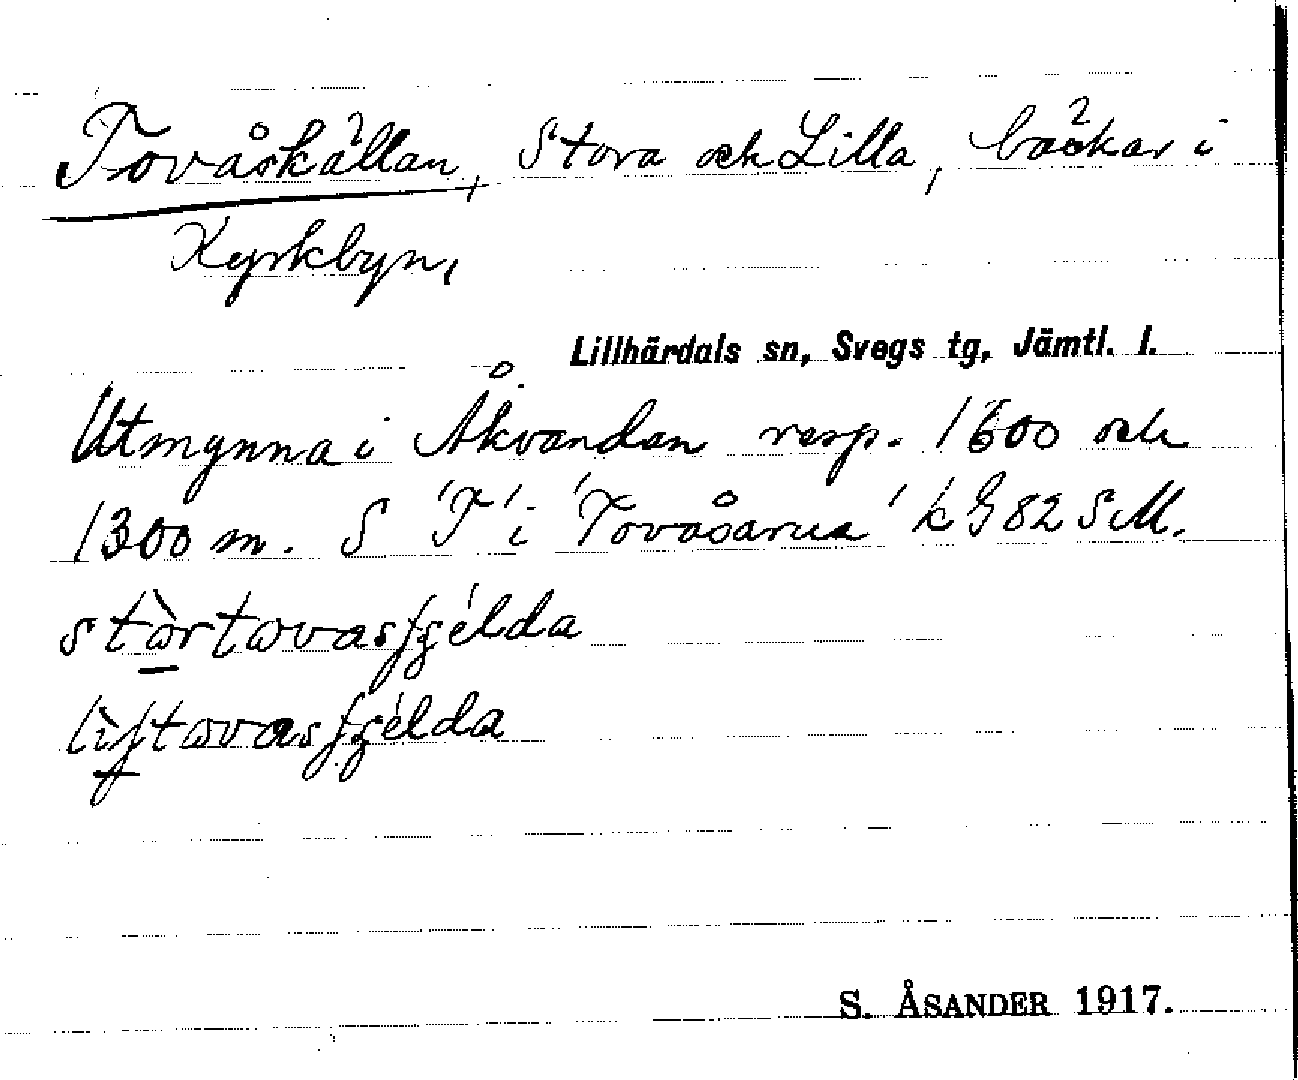 Tovåskällan, Stora och Lilla, bäckar i
Kyrkbyn,
Lillhärdals sn, Svegs tg, Jämtl. l.
Utmynna i Åkvandan resp. 1600 och
1300 m. S 'T' i 'Tovåsarna' k G 82 SM.
stòrtovasʃgélda
lìʃtovasʃgélda
S. ÅSANDER 1917.